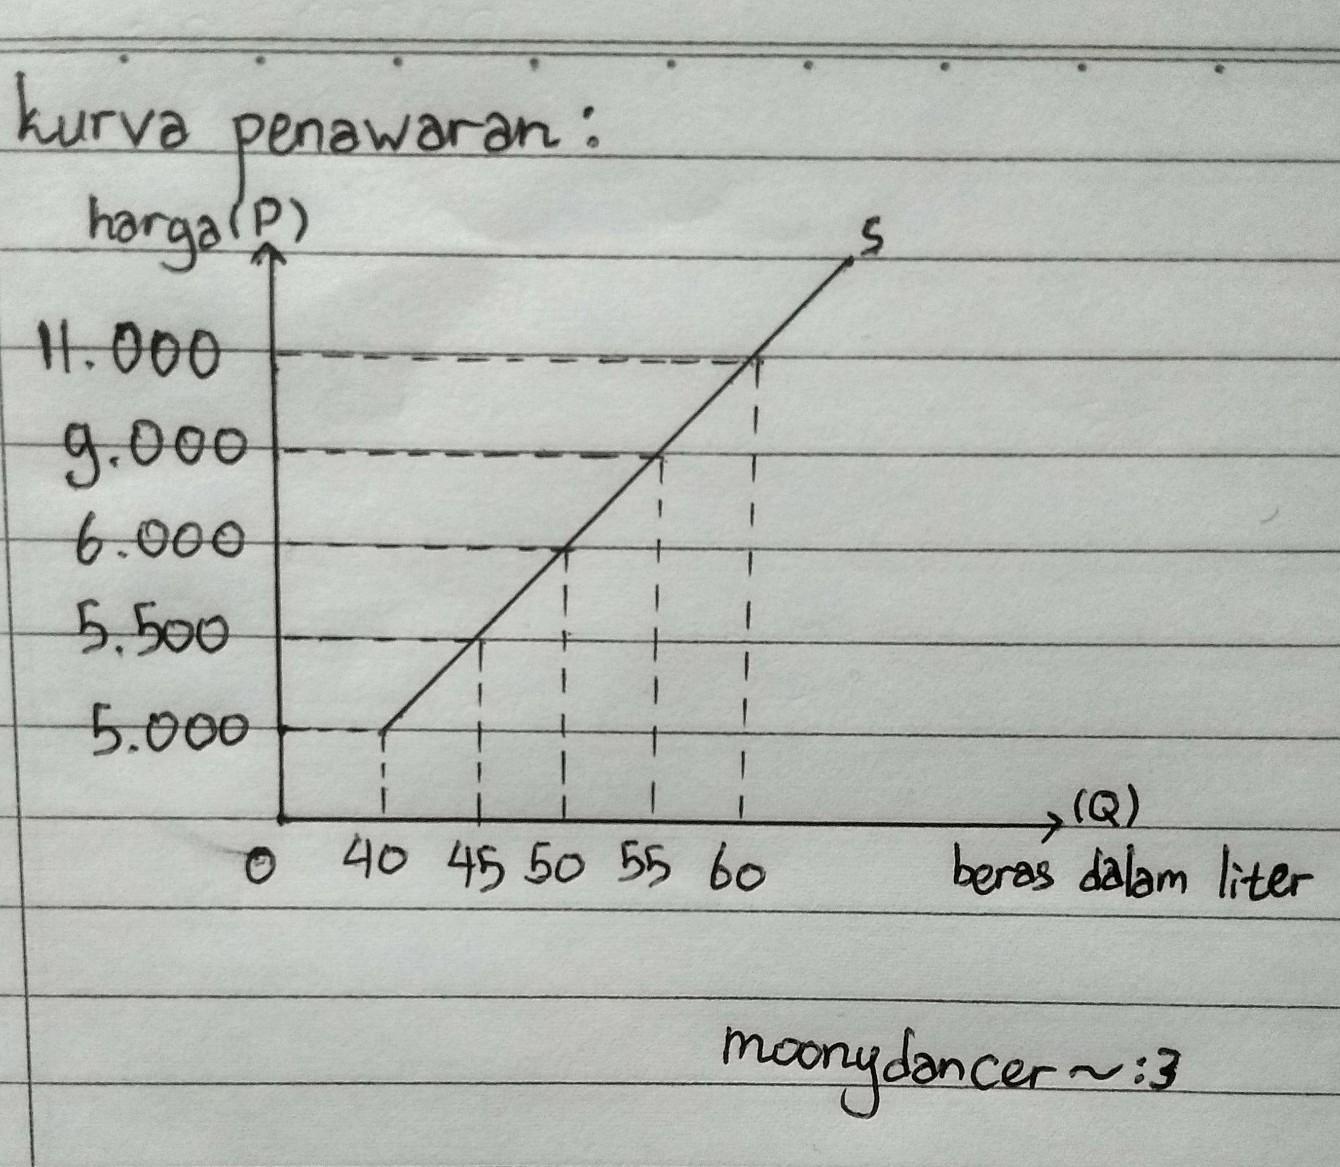 kurva penawaran:
harga (P)
S
11.000
9.000
6.000
5.500
5.000
(Q)
0 40 45 50 55 60 beras dalam liter
moonydancer~:3